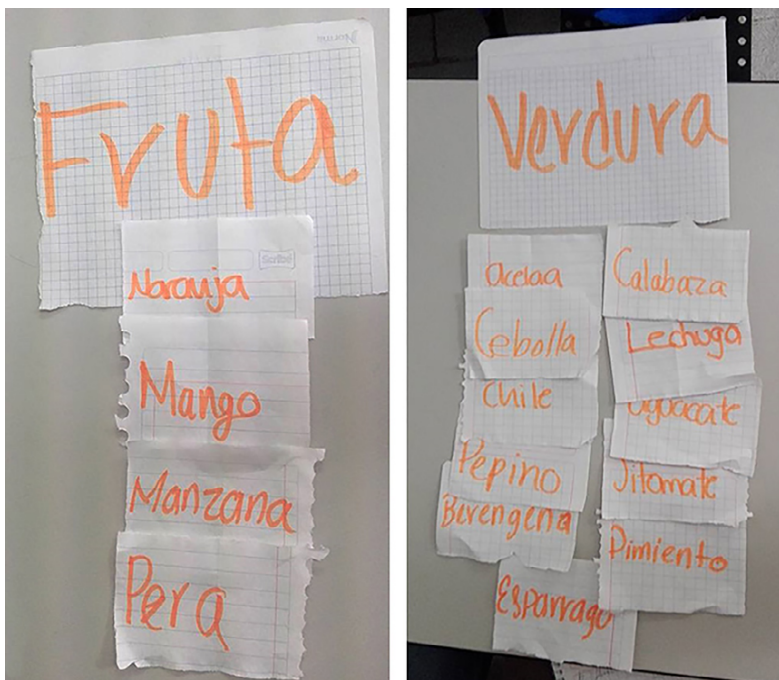 Fruta
Scribe
Naranja
Mango
Manzana
Pera
Verdura
acelga
Cebolla
Chile
Pepino
Berengena
Calabaza
Lechuga
aguacate
Jitomate
Pimiento
Esparrago